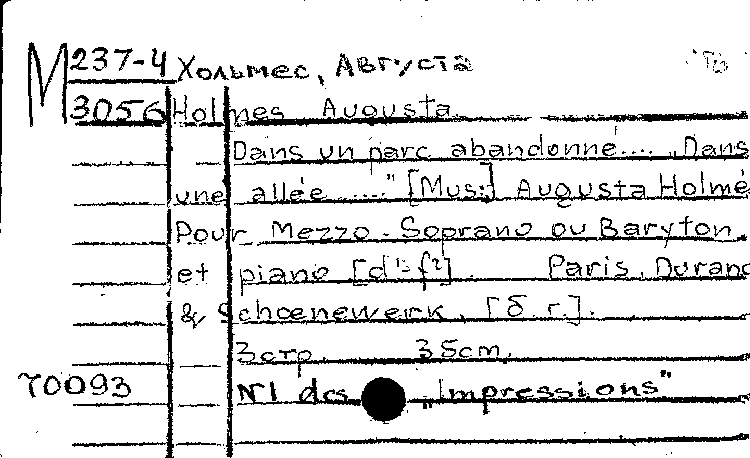 М 237-4 Хольмес, Августа
3056 Holmes Augusta
Dans un parc abandonné.... „Dans
une allée ....." [Mus:] Augusta Holmé
Pour Mezzo-Soprano ou Baryton.
et piano [d¹-f²]. Paris, Durand
& Schœnewerk, [б. г.].
3 стр. 35cm.
70093 N1 des „Impressions"